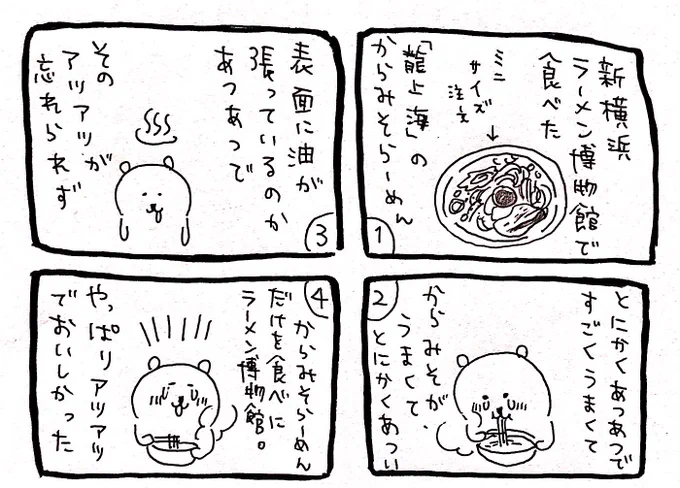 新横浜
ラーメン博物館で
食べた
ミニ
サイズ
注文
「龍上海」の
からみそらーめん
1
とにかくあつあつで
すごくうまくて
からみそが、
うまくて、
とにかくあつい
2
表面に油が
張っているのか
あつあつで
その
アツアツが
忘れられず
3
からみそらーめん
だけを食べに
ラーメン博物館。
やっぱりアツアツ
でおいしかった
4